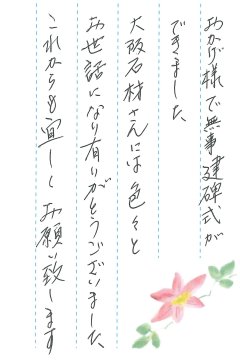 おかげ様で無事建碑式が
できました、
大阪石材さんには色々と
お世話になり有りがとうございました、
これからも宜しくお願い致します